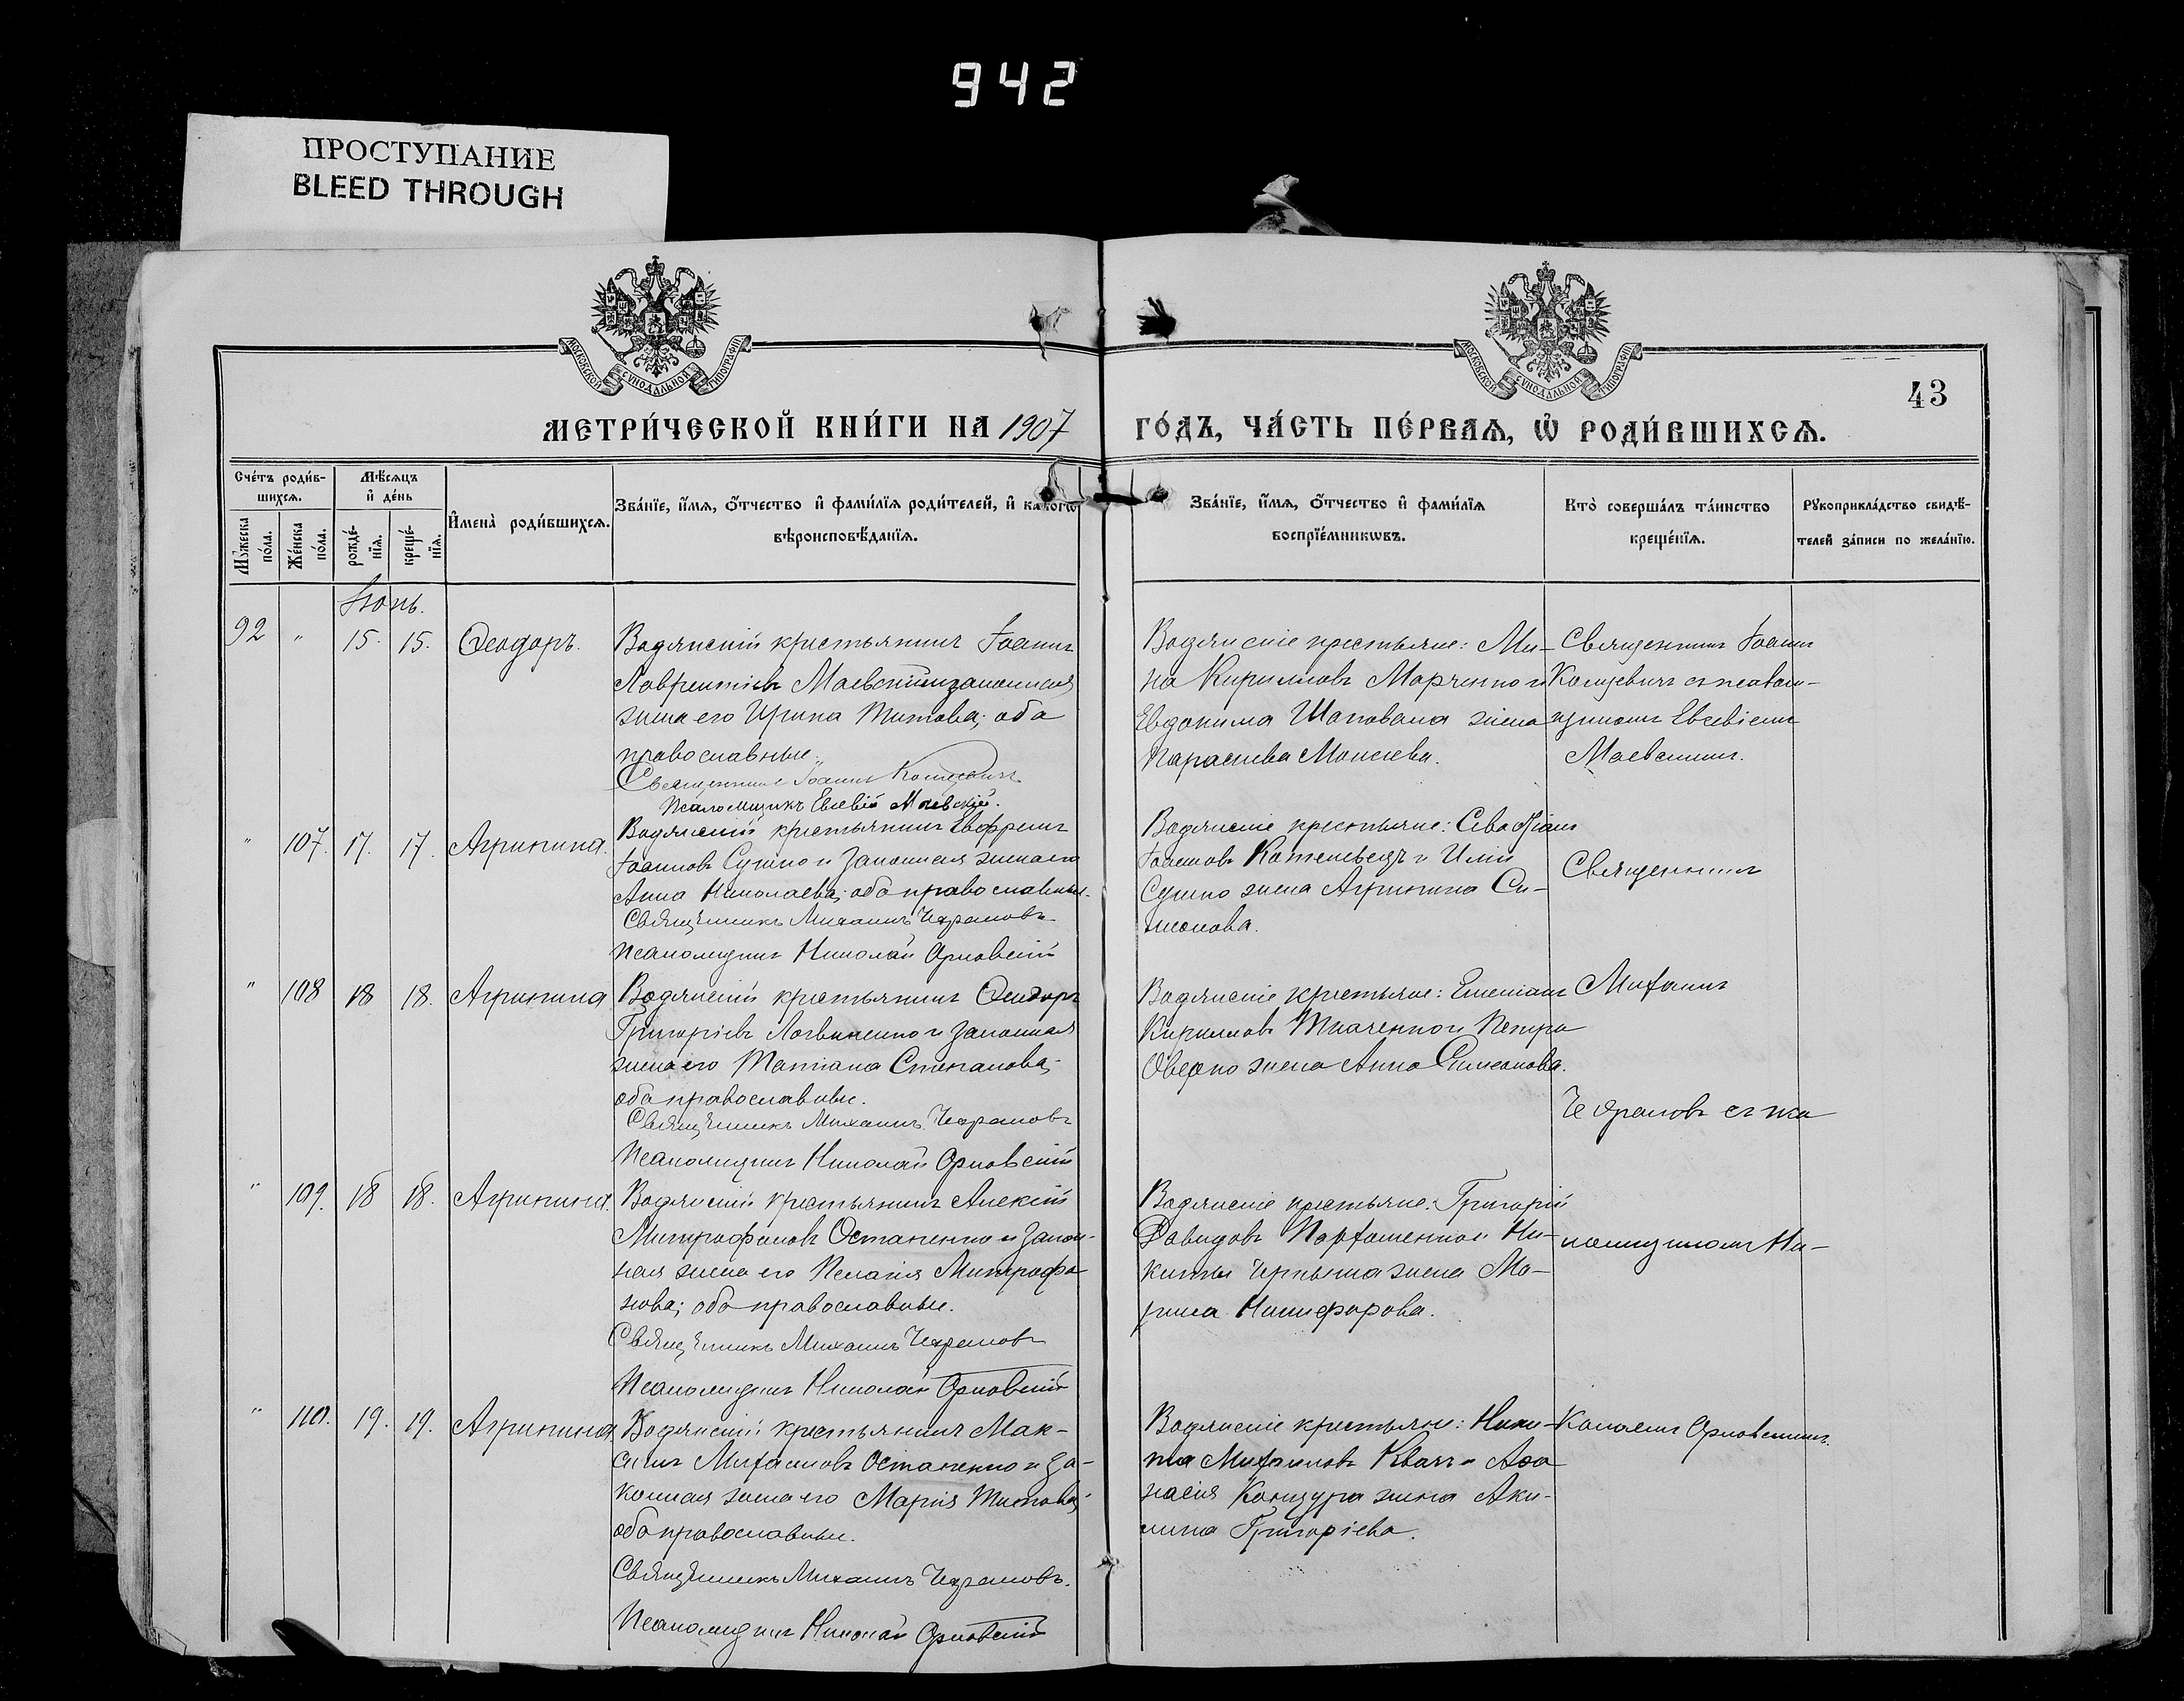 942
ПРОСТУПАНИЕ
BLEED THROUGH
МОСКОВСКОЙ СУНОДАЛЬНОЙ ТИПОГРАФІИ
МОСКОВСКОЙ СУНОДАЛЬНОЙ ТИПОГРАФІИ
43
МЕТРИ́ЧЕСКОЙ КНИ́ГИ НА 1907 ГО́ДЪ, ЧА́СТЬ ПЕ́РВАѦ, Ѡ҆ РОДИ́ВШИХСѦ.
Сче́тъ роди́в-
шихсѧ.
Мѣ́сѧцъ
и҆ де́нь
Мꙋжеска
по́ла.
Же́нска
по́ла.
рожде́-
нїѧ.
креще́-
нїѧ.
И҆мена̀ роди́вшихсѧ.
Зва́нїе, и҆́мѧ, ѻ҆́тчество и҆ фами́лїѧ роди́телей, и҆ како́гѡ
вѣроисповѣ́данїѧ.
Зва́нїе, и҆́мѧ, ѻ҆́тчество и҆ фами́лїѧ
воспрїе́мникѡвъ.
Кто̀ соверша́лъ та́инство
креще́нїѧ.
Рꙋкоприкла́дство свидѣ́-
телей за́писи по жела́нїю.
Іюнь.
92 " 15. 15. Ѳеодоръ.
Водянскій крестьянинъ Іоаннъ
Лаврентіевъ Маевскій и законная
жена его Ирина Титова; оба
православные.
Священникъ Іоаннъ
Псаломщикъ Евсевій Маевскій.
Водянскіе крестьяне: Ми-
на Кирилловъ Марченко и
Евдокима Шаповала жена
Параскева Моисеева.
Священникъ Іоаннъ
съ псалом-
щикомъ Евсевіемъ
Маевскимъ.
" 107. 17. 17. Агрипина.
Водянскій крестьянинъ Евфремъ
Іоанновъ Сушко и законная жена его
Анна Николаева; оба православные.
Священникъ Михаилъ
Псаломщикъ Николай Орловскій
Водянскіе крестьяне: Севастіанъ
Іоанновъ Котельвецъ и Иліи
Сушко жена Агрипина Си-
монова.
Священникъ
" 108 18 18. Агрипина
Водянскій крестьянинъ Ѳеодоръ
Григоріевъ Логвиненко и законная
жена его Татіана Степанова;
оба православные.
Священникъ Михаилъ
Псаломщикъ Николай Орловскій
Водянскіе крестьяне: Емеліанъ
Кирилловъ Ткаченко и Петра
жена Анна Симеонова.
Михаилъ
съ пса
" 109. 18 18. Агрипина.
Водянскій крестьянинъ Алексій
Митрофановъ Остапенко и закон-
ная жена его Пелагія Митрофа-
нова; оба православные.
Священникъ Михаилъ
Псаломщикъ Николай Орловскій
Водянскіе крестьяне: Григорій
Давидовъ Пархоменко и Ни-
киты жена Ма-
рина Никифорова.
ломщикомъ Ни-
" 110. 19. 19. Агрипина
Водянскій крестьянинъ Мак-
симъ Михаиловъ Остапенко и за-
конная жена его Марія Титова;
оба православные.
Священникъ Михаилъ
Псаломщикъ Николай Орловскій
Водянскіе крестьяне: Ники-
та Михаиловъ Квачъ и Аѳа
насія Канцура жена Аки-
лина Григоріева.
колаемъ Орловскимъ.